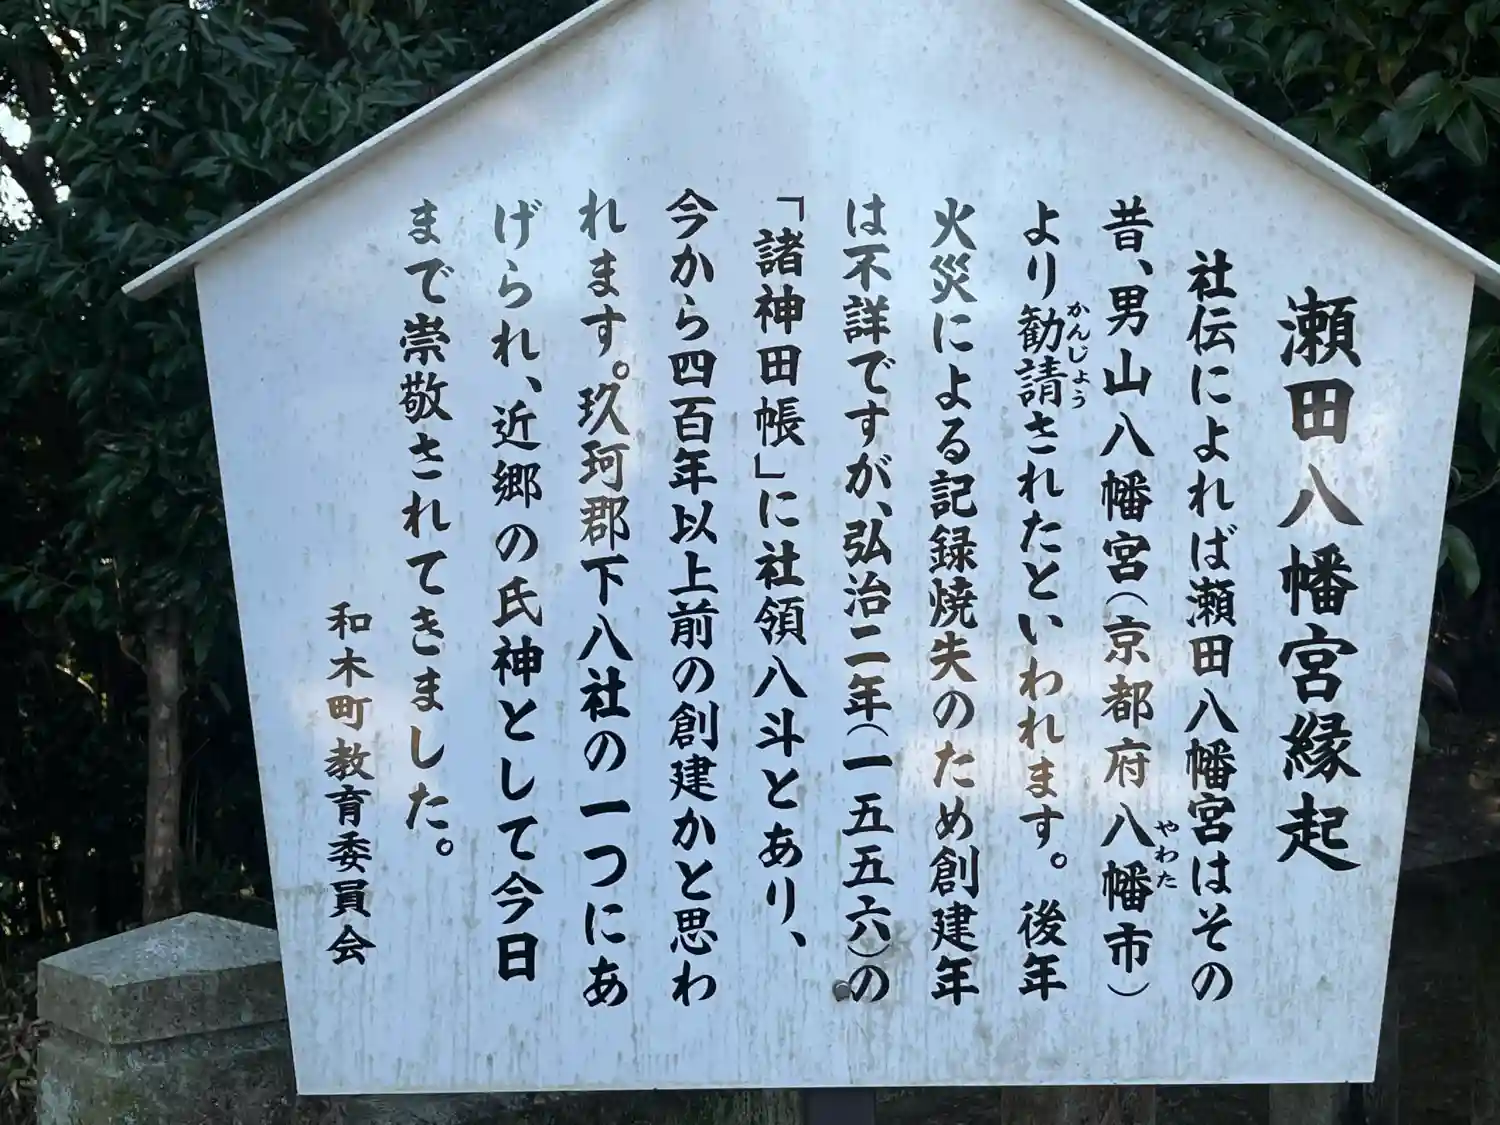 瀬田八幡宮縁起
社伝によれば瀬田八幡宮はその
昔、男山八幡宮(京都府八幡市)
やわた
より勧請されたといわれます。後年
かんじょう
火災による記録焼失のため創建年
は不詳ですが、弘治二年(一五五六)の
「諸神田帳」に社領八斗とあり、
今から四百年以上前の創建かと思わ
れます。玖珂郡下八社の一つにあ
げられ、近郷の氏神として今日
まで崇敬されてきました。
和木町教育委員会